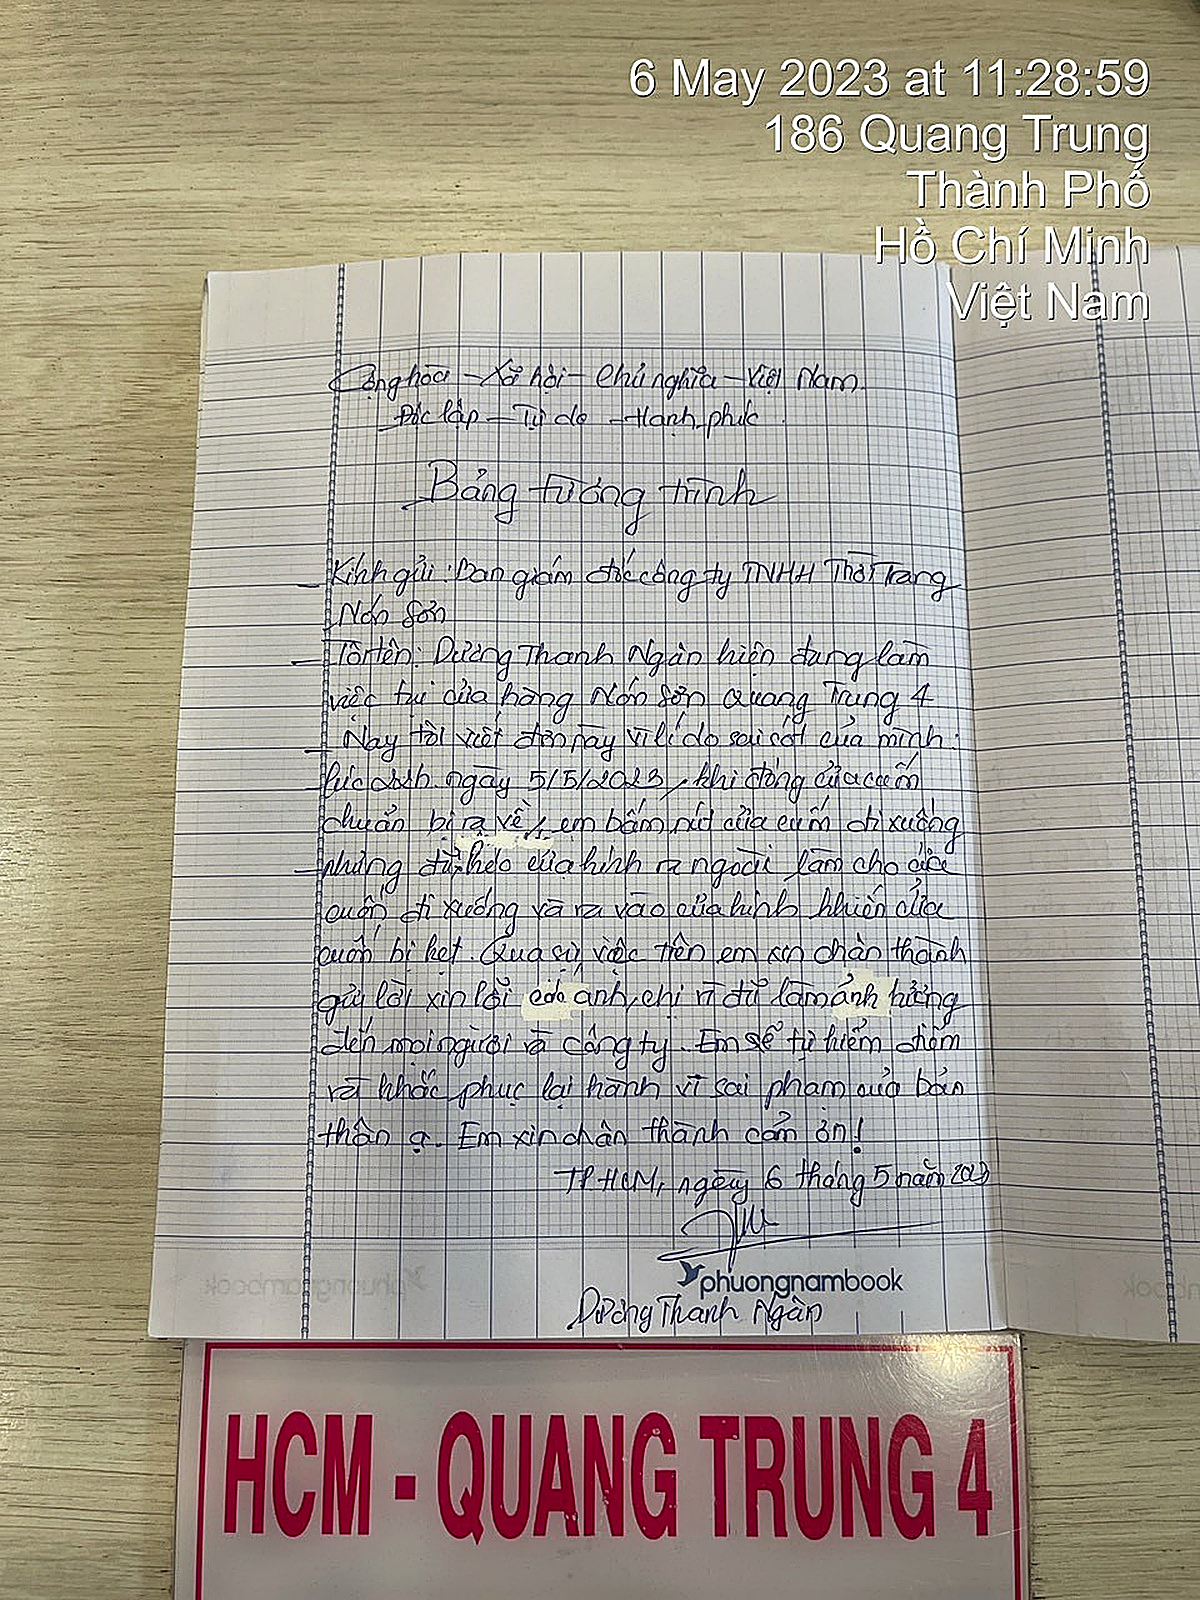 6 May 2023 at 11:28:59
186 Quang Trung
Thành Phố
Hồ Chí Minh
Việt Nam
Cộng hòa - Xã hội - Chủ nghĩa - Việt Nam.
Độc lập - Tự do - Hạnh phúc.
Bảng tường trình
- Kính gửi: Ban giám đốc công ty TNHH Thời Trang
Nón Sơn
- Tôi tên: Dương Thanh Ngân hiện đang làm
việc tại cửa hàng Nón Sơn Quang Trung 4
- Nay tôi viết đơn này vì lí do sai sót của mình:
lúc 22h ngày 5/5/2023, khi đóng cửa cuốn
chuẩn bị ra về, em bấm nút cửa cuốn đi xuống
nhưng để kéo cửa kính ra ngoài làm cho cửa
cuốn đi xuống và ra vào cửa kính khiến cửa
cuốn bị kẹt. Qua sự việc trên em xin chân thành
gửi lời xin lỗi các anh, chị vì đã làm ảnh hưởng
đến mọi người và công ty. Em sẽ tự kiểm điểm
và khắc phục lại hành vi sai phạm của bản
thân ạ. Em xin chân thành cảm ơn!
TP.HCM, ngày 6 tháng 5 năm 2023
phuongnambook
Dương Thanh Ngân
HCM - QUANG TRUNG 4